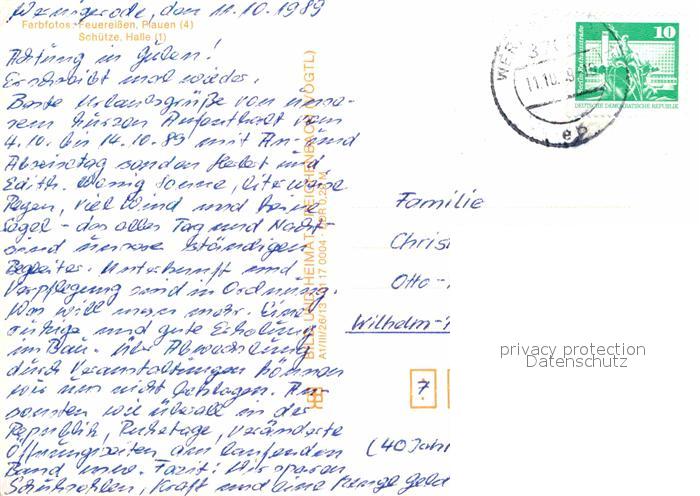 Wernigerode, den 11.10.1989
Farbfotos: Feuereißen, Plauen (4)
Schütze, Halle (1)
Achtung in Güben!
Er schreibt mal wieder.
Beste Urlaubsgrüße von unse-
rem kurzen Aufenthalt vom
4.10. bis 14.10.89 mit An- und
Abreisetag senden Hebet und
Edith. Wenig Sonne, literweise
Regen, viel Wind und keine
Segel - das alles Tag und Nacht
sind unsere ständigen
Begleiter. Unterkunft und
Verpflegung sind in Ordnung.
Was will man mehr. Eine
ruhige und gute Erholung
im Bau. Über Abwechslung
durch Veranstaltungen können
wir uns nicht beklagen. An-
sonsten wie überall in der
Republik, Ruhetage, veränderte
Öffnungszeiten am laufenden
Band usw. Fazit: Wir sparen
Schuhsohlen, Kraft und eine Menge Geld
BILD UND HEIMAT REICHENBACH (VOGTL)
A1/III/26/13 01 17 0004
WER
11.10.8
10
DEUTSCHE DEMOKRATISCHE REPUBLIK
Familie
Christ
Otto-
Wilhelm-
7
(40 Jahr
privacy protection
Datenschutz